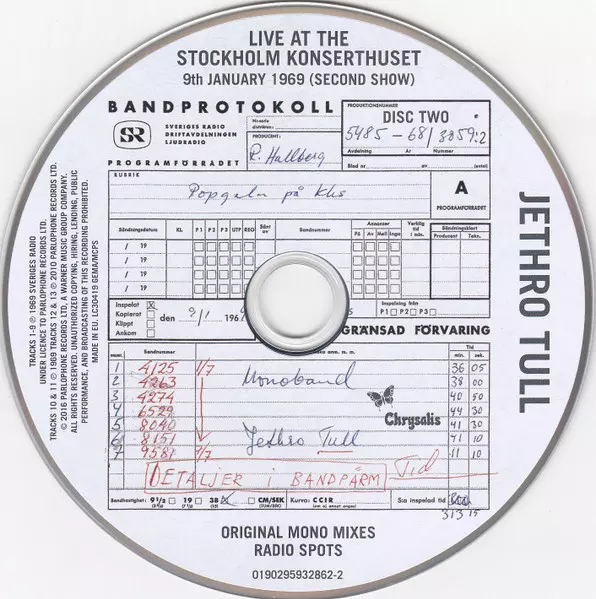 LIVE AT THE
STOCKHOLM KONSERTHUSET
9th JANUARY 1969 (SECOND SHOW)
BANDPROTOKOLL
SR
SVERIGES RADIO
DRIFTAVDELNINGEN
LJUDRADIO
PROGRAMFÖRRÅDET
PRODUCENT:
R. Hallberg
PRODUKTIONSNUMMER
DISC TWO
5485-68/3059:2
Avdelning Ar Nummer
Blad nr av
RUBRIK
Popgala på Khs
A
PROGRAMFÖRRÅDET
Sändningsdatum KL P1 P2 P3 UTP REG Sänt av Bandnummer Annonser Verklig tid i min. Sändningskontroll
På Av Mell Inga Producent Tekn.
/ 19
/ 19
/ 19
/ 19
Inspelat X
Kopierat
Klippt
Ankom
den 9/1 196
Inspelning från
P1 P2 P3
GRÄNSAD FÖRVARING
Bandnummer
Tid
min. sek.
1 4125 1/7 Monoband 36 05
2 4263 38 00
3 4274 40 50
4 6529 44 30
5 8040 41 30
6 8151 Jethro Tull 41 10
7 9581 7/7 11 10
Chrysalis
DETALJER I BANDPÄRM Tid
Bandhastighet: 9 1/2 19 38 X CM/SEK Kurva: CCIR S:a inspelad tid
313 15
ORIGINAL MONO MIXES
RADIO SPOTS
0190295932862-2
JETHRO TULL
TRACKS 1-9 ℗ 1969 SVERIGES RADIO
UNDER LICENCE TO PARLOPHONE RECORDS LTD.
TRACKS 10 & 11 ℗ 1969 TRACKS 12 & 13 ℗ 2010 PARLOPHONE RECORDS LTD.
© 2016 PARLOPHONE RECORDS LTD, A WARNER MUSIC GROUP COMPANY.
ALL RIGHTS RESERVED. UNAUTHORIZED COPYING, HIRING, LENDING, PUBLIC
PERFORMANCE, AND BROADCASTING OF THIS RECORDING PROHIBITED.
MADE IN EU. LC30419 GEMA/MCPS